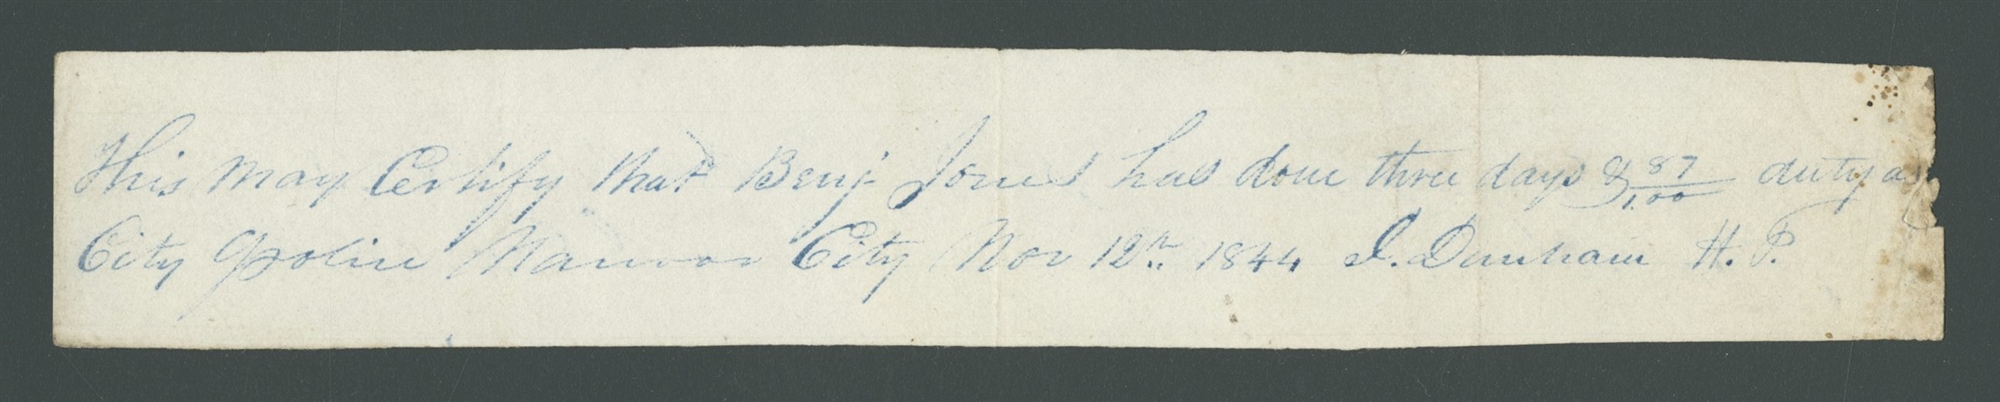 This may Certify that Benj Jones has done three days & 87/100 duty as
City Police Nauvoo City Nov 12th 1844 J. Dunham H. P.